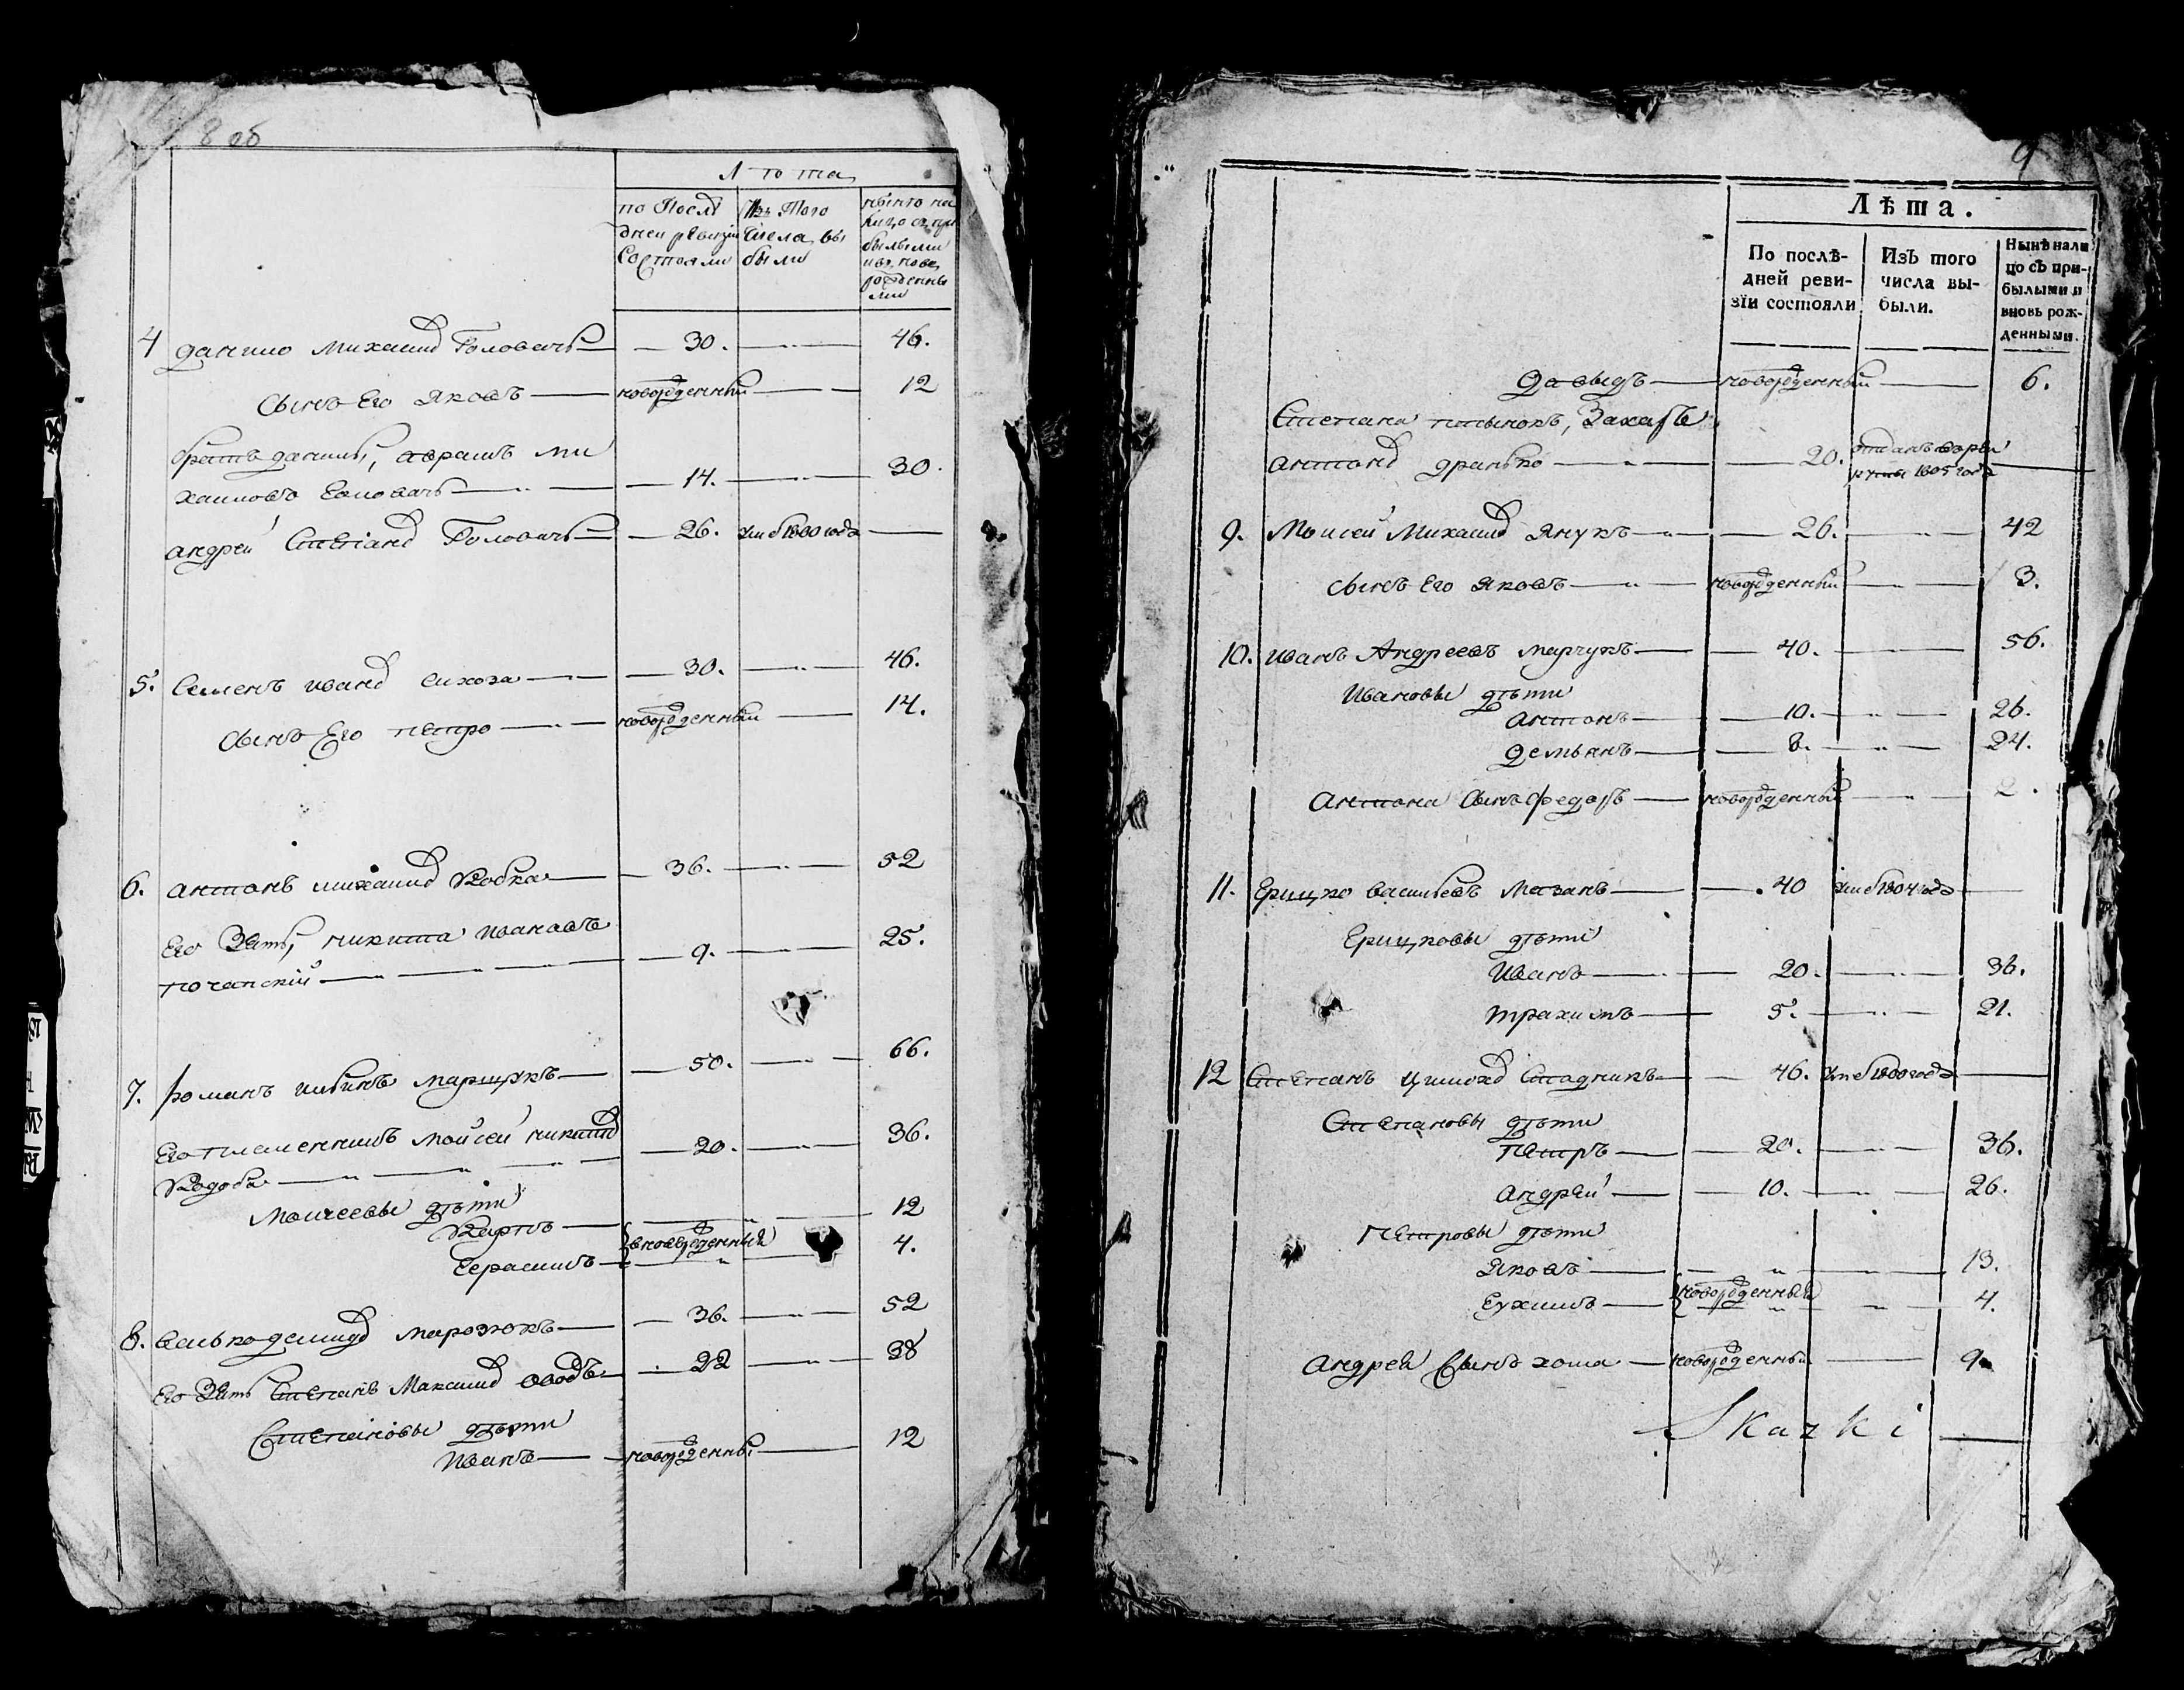 8 об
Лѣта
по Послѣ
дней ревизіи
Состояли
Изъ Того
Числа вы
были
ныне на
лицо съ при
былыми
и вновь
рожденны
ми
4 данило Михайлов Головачъ 30. 46.
Сынъ Его Яковъ новорожденный 12
братъ данилы, аврамъ ми
хайловъ Головачъ 14. 30.
андрей Степанов Головачъ 26. умеръ 1800 года
5. Семенъ иванов 30. 46.
Сынъ Его петро новорожденный 14.
6. антонъ михайлов 36. 52
Его Зять, никита ивановъ
почапский 9. 25.
7. романъ ильинъ марцукъ 50. 66.
Его племенникъ мойсей никитов
20. 36.
Моисеевы дѣти
Карпъ 12
вноврожденный
Герасимъ 4.
8. Васько демидов марозюкъ 36. 52
Его Зять Степанъ Максимов 22 38
Степановы дѣти
Иванъ новорожденный 12
9
Лѣта.
По послѣ-
дней реви-
зїи состояли
Изъ того
числа вы-
были.
Нынѣ нали
цо съ при-
былыми и
вновь рож-
денными.
Давыдъ новорожденный 6.
Степана Захаръ
антонов 20. отданъ въ
рекруты 1805 года
9. Моисей Михайлов Янукъ 26. 42
Сынъ Его Яковъ новорожденный 3.
10. иванъ Андреевъ марчукъ 40. 56.
Ивановы дѣти
антонъ 10. 26.
Демьянъ 8. 24.
Антона Сынъ Федоръ новорожденный 2.
11. Грицко васильевъ мазанъ 40 умеръ 1804 года
Грицковы дѣти
Иванъ 20. 36.
трахимъ 5. 21.
12 Степанъ Стадникъ 46. умеръ 1800 года
Степановы дѣти
Петръ 20. 36.
андрей 10. 26.
Петровы дѣти
Яковъ 13.
новорожденный
Еухимъ 4.
андрея Сынъ хома новорожденный 9
Skazki